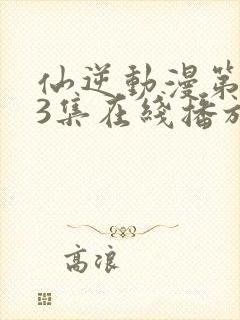 仙逆動漫第
3集在綫播放
高浪